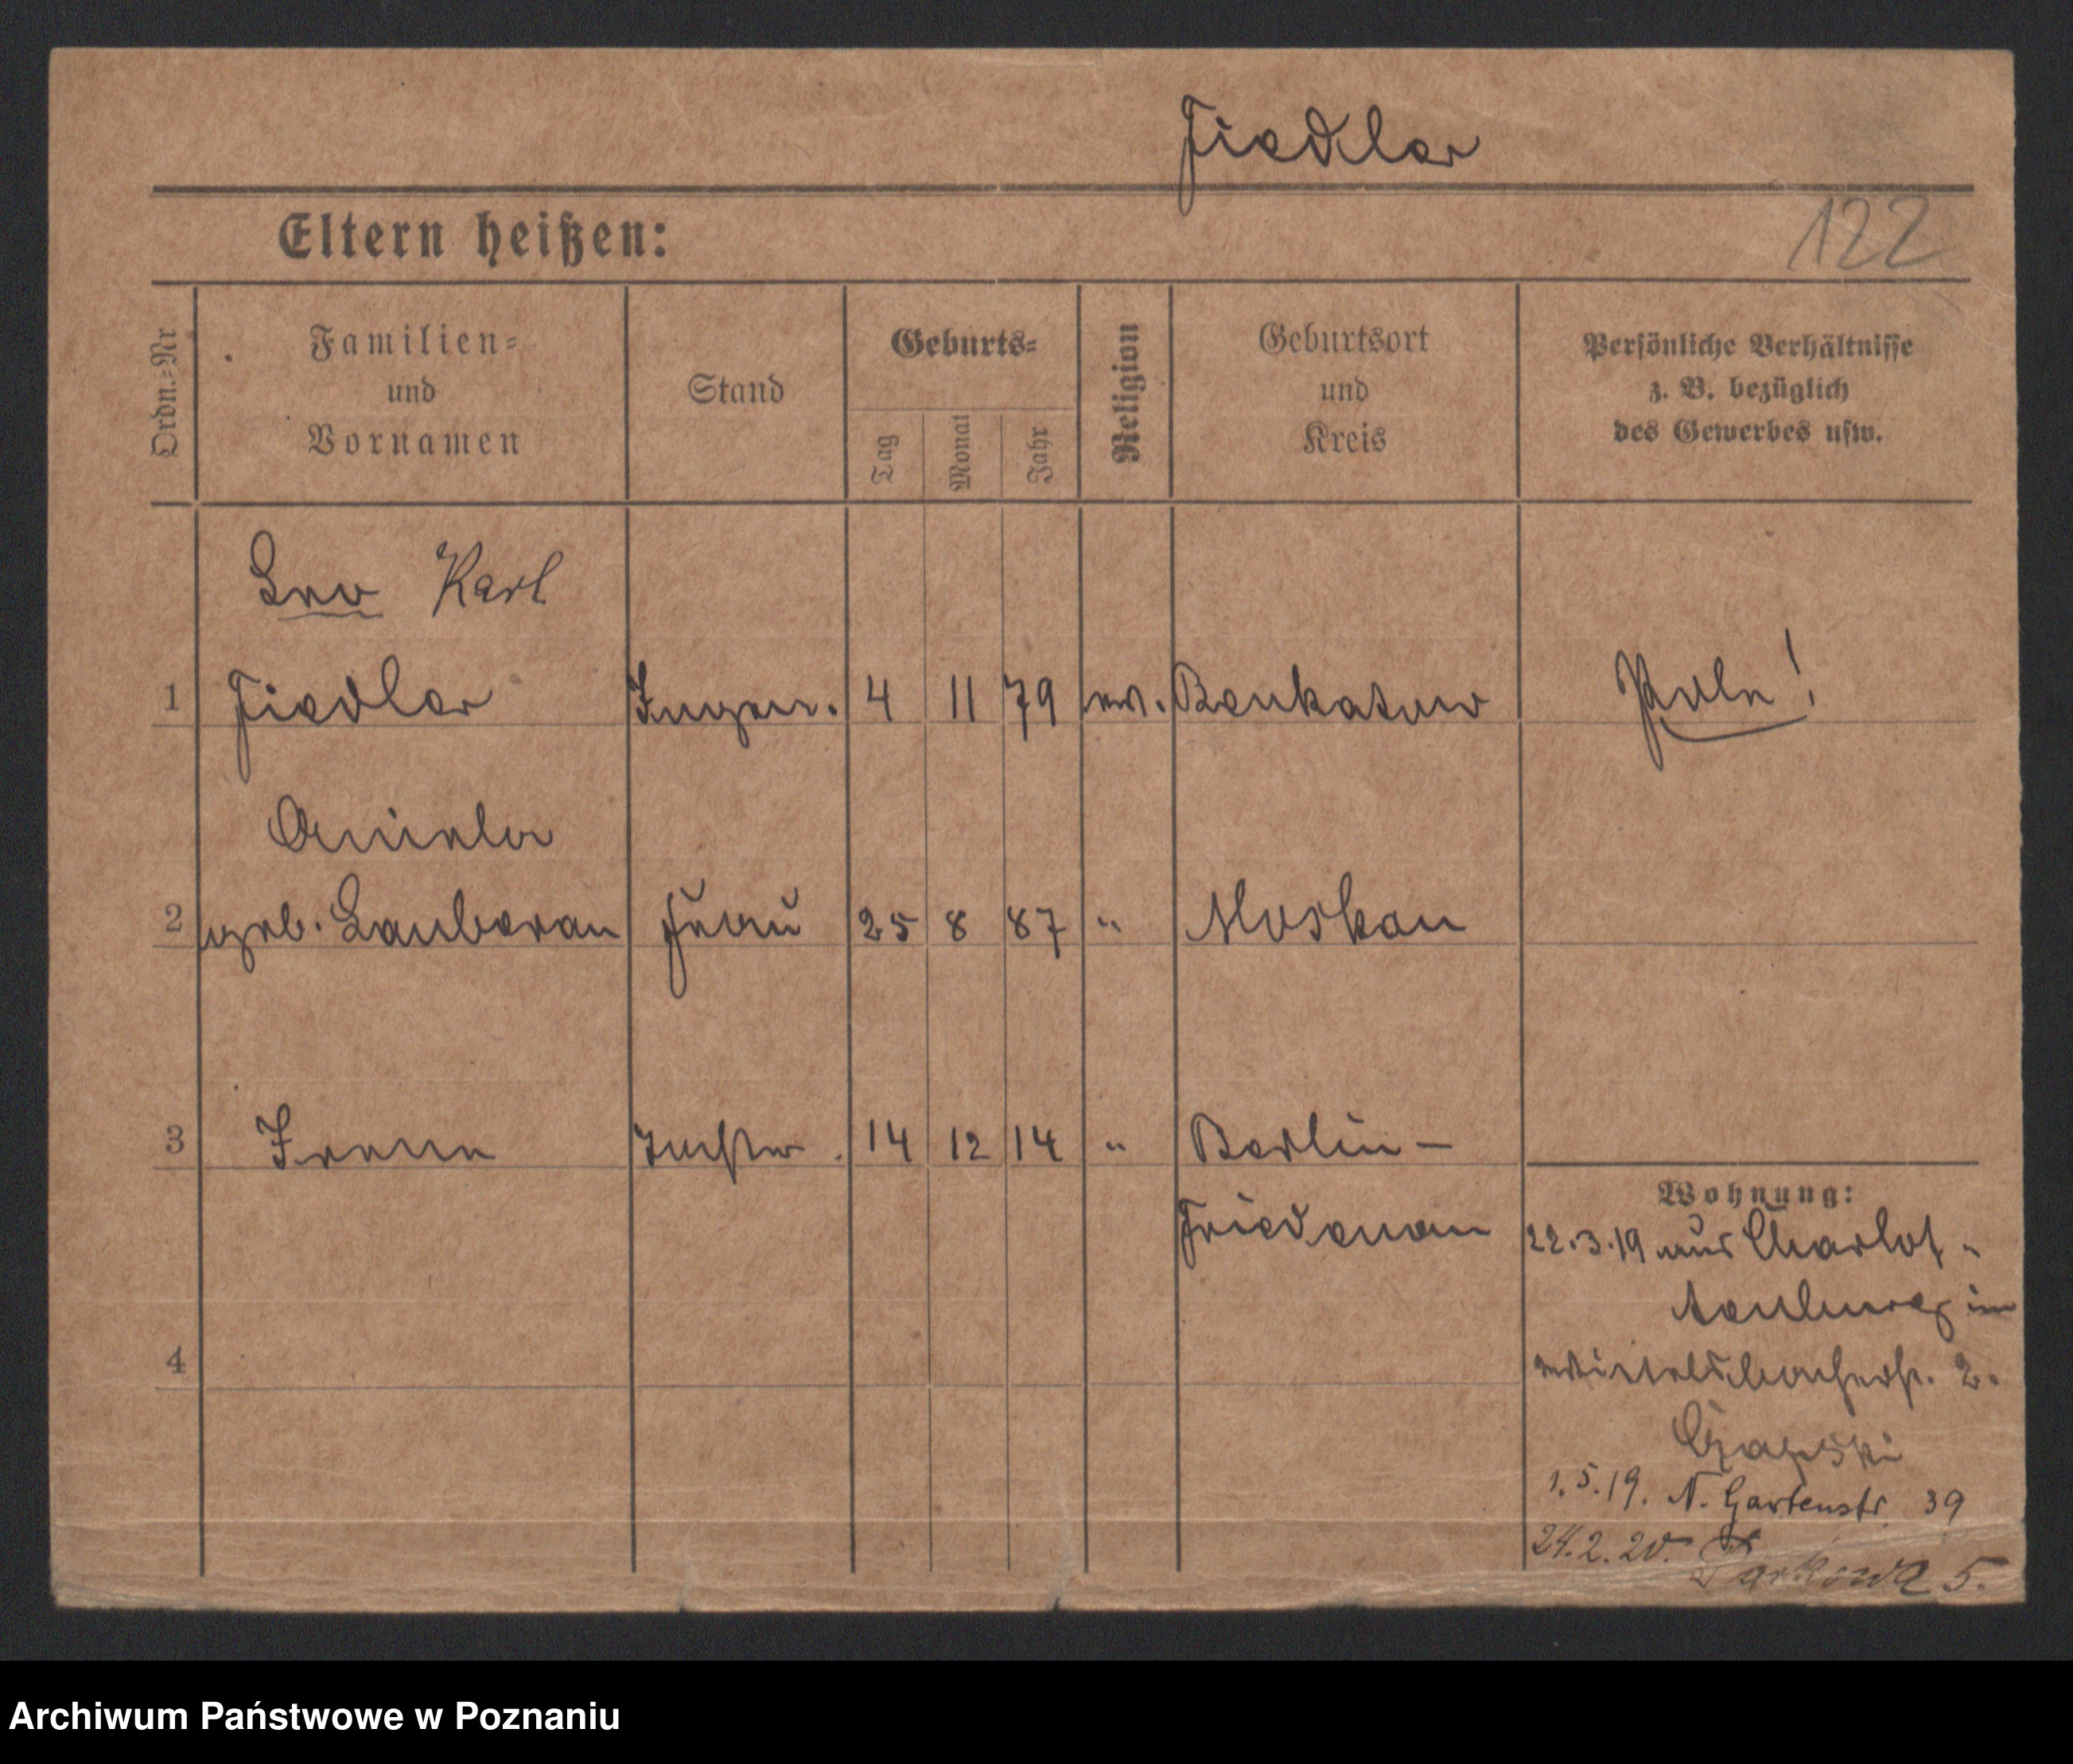 Fiedler
Eltern heißen:
122
Ordn.-Nr
Familien-
und
Vornamen
Stand
Geburts-
Tag
Monat
Jahr
Religion
Geburtsort
und
Kreis
Persönliche Verhältnisse
z. B. bezüglich
des Gewerbes usw.
Leo Karl
1 Fiedler Ingen. 4 11 79 ev. Pole!
Aniela
2 geb. Frau 25 8 87 " Moskau
3 Irene Tochter 14 12 14 " Berlin-
Friedenau
Wohnung:
22.3.19 aus Charlot-
tenburg in
Wittelsbacherstr. 2.
4
1.5.19. N. Gartenstr 39
24.2.20. 5.
Archiwum Państwowe w Poznaniu